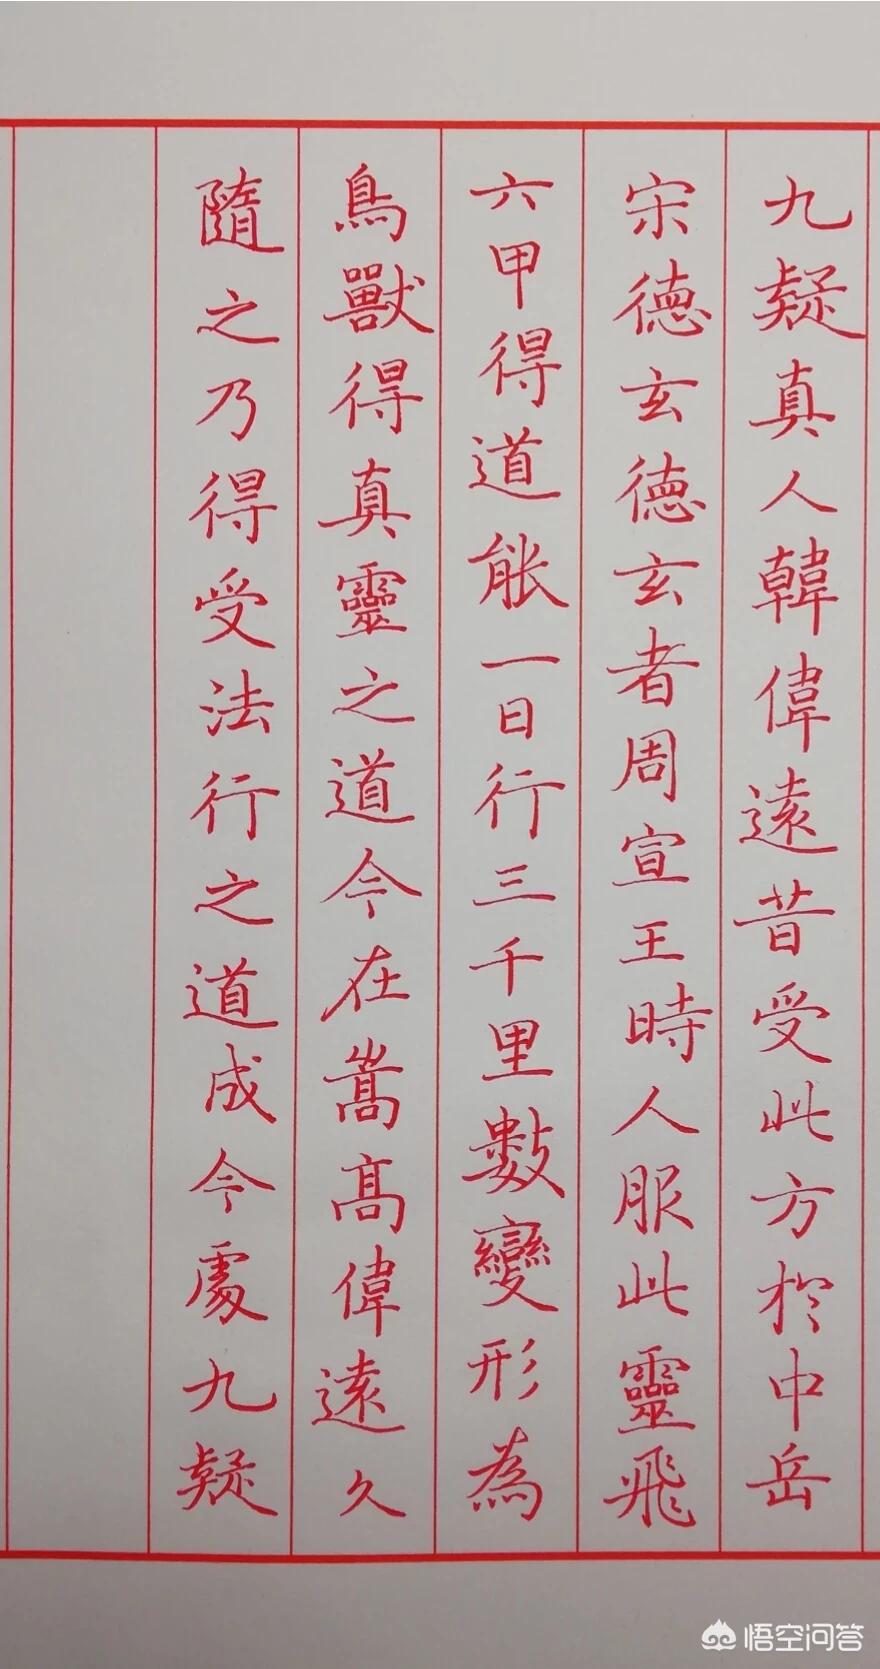 九疑真人韓偉遠昔受此方於中岳
宋德玄德玄者周宣王時人服此靈飛
六甲得道能一日行三千里數變形為
鳥獸得真靈之道今在嵩高偉遠久
隨之乃得受法行之道成今處九疑
悟空问答